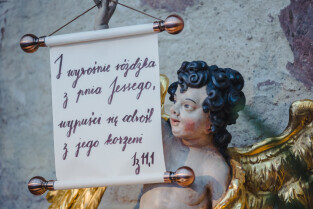 I wyrośnie różdżka
z pnia Jessego,
wypuści się odrośl
z jego korzeni
Iz 11,1